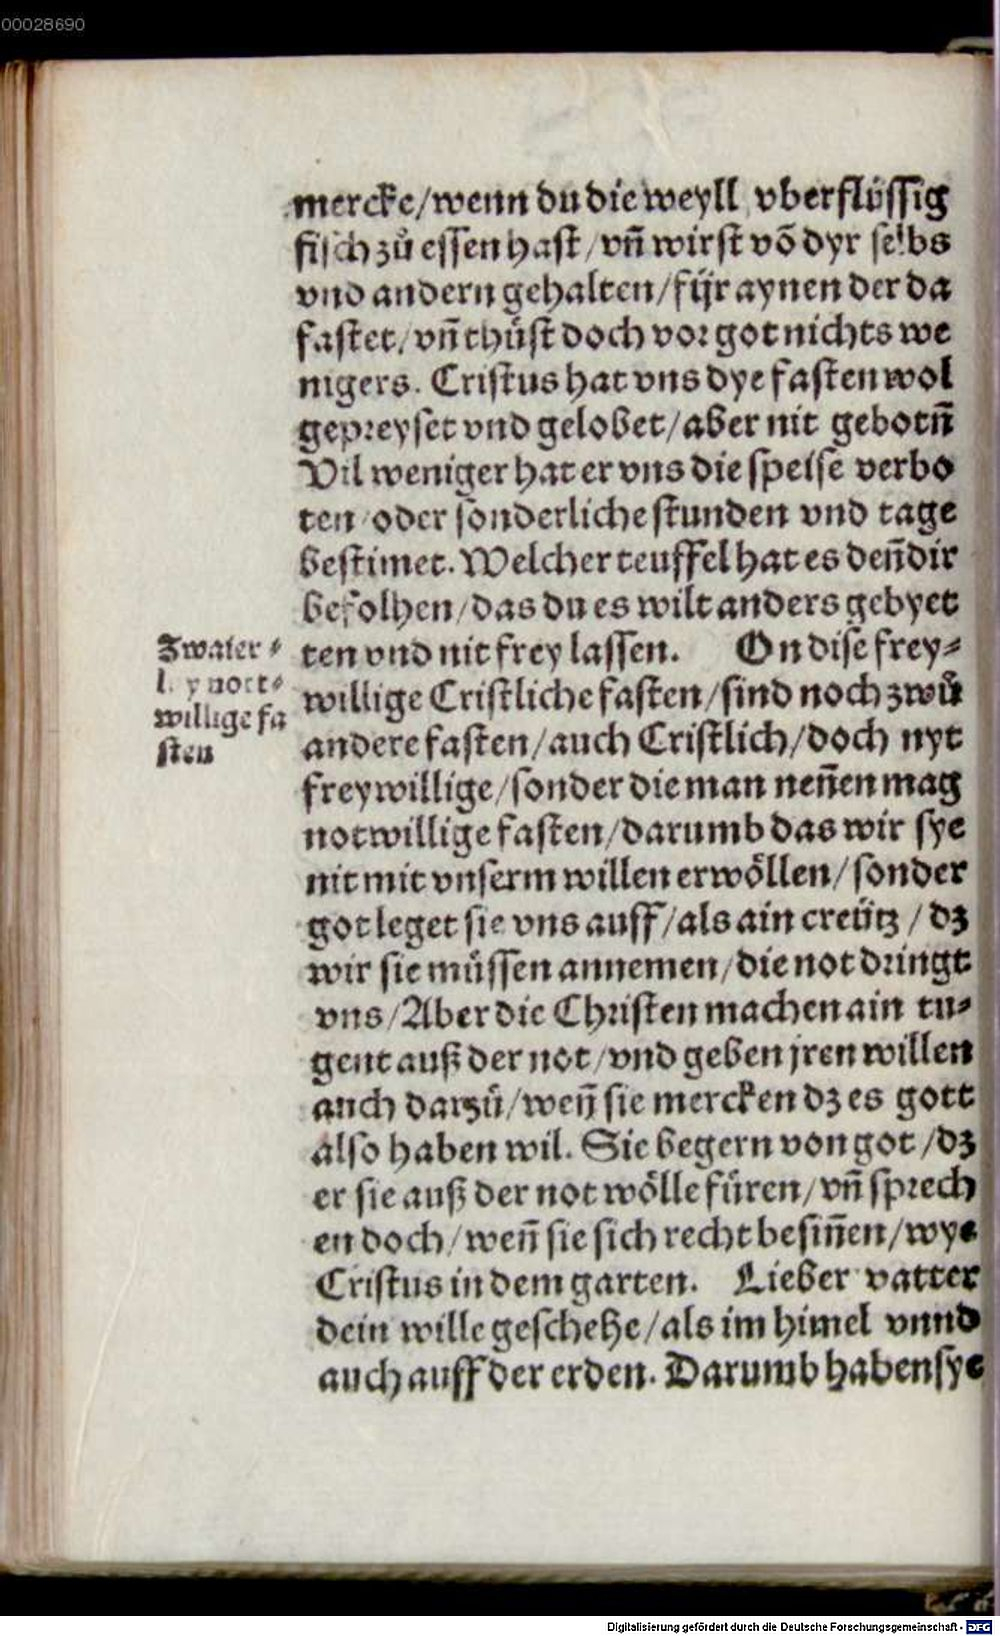 00028690
mercke/wenn du die weyll vberflüssig
fisch zů essen hast/vn̄ wirst võ dyr selbs
vnd andern gehalten/für aynen der da
fastet/vn̄ thůst doch vor got nichts we
nigers. Cristus hat vns dye fasten wol
gepreyset vnd gelobet/aber nit gebotn̄
Vil weniger hat er vns die speise verbo
ten/oder sonderliche stunden vnd tage
bestimet. Welcher teuffel hat es den̄ dir
befolhen/das du es wilt anders gebyet
ten vnd nit frey lassen. On dise frey⸗
Zwaier⸗
ley nott⸗
willige fa
sten
willige Cristliche fasten/sind noch zwů
andere fasten/auch Cristlich/doch nyt
freywillige/sonder die man nen̄en mag
notwillige fasten/darumb das wir sye
nit mit vnserm willen erwöllen/sonder
got leget sie vns auff/als ain creütz/dz
wir sie müssen annemen/die not dringt
vns/Aber die Christen machen ain tu⸗
gent auß der not/vnd geben jren willen
auch darzů/wen̄ sie mercken dz es gott
also haben wil. Sie begern von got/dz
er sie auß der not wölle füren/vn̄ sprech
en doch/wen̄ sie sich recht besin̄en/wye
Cristus in dem garten. Lieber vatter
dein wille geschehe/als im himel vnnd
auch auff der erden. Darumb haben sye
Digitalisierung gefördert durch die Deutsche Forschungsgemeinschaft - DFG